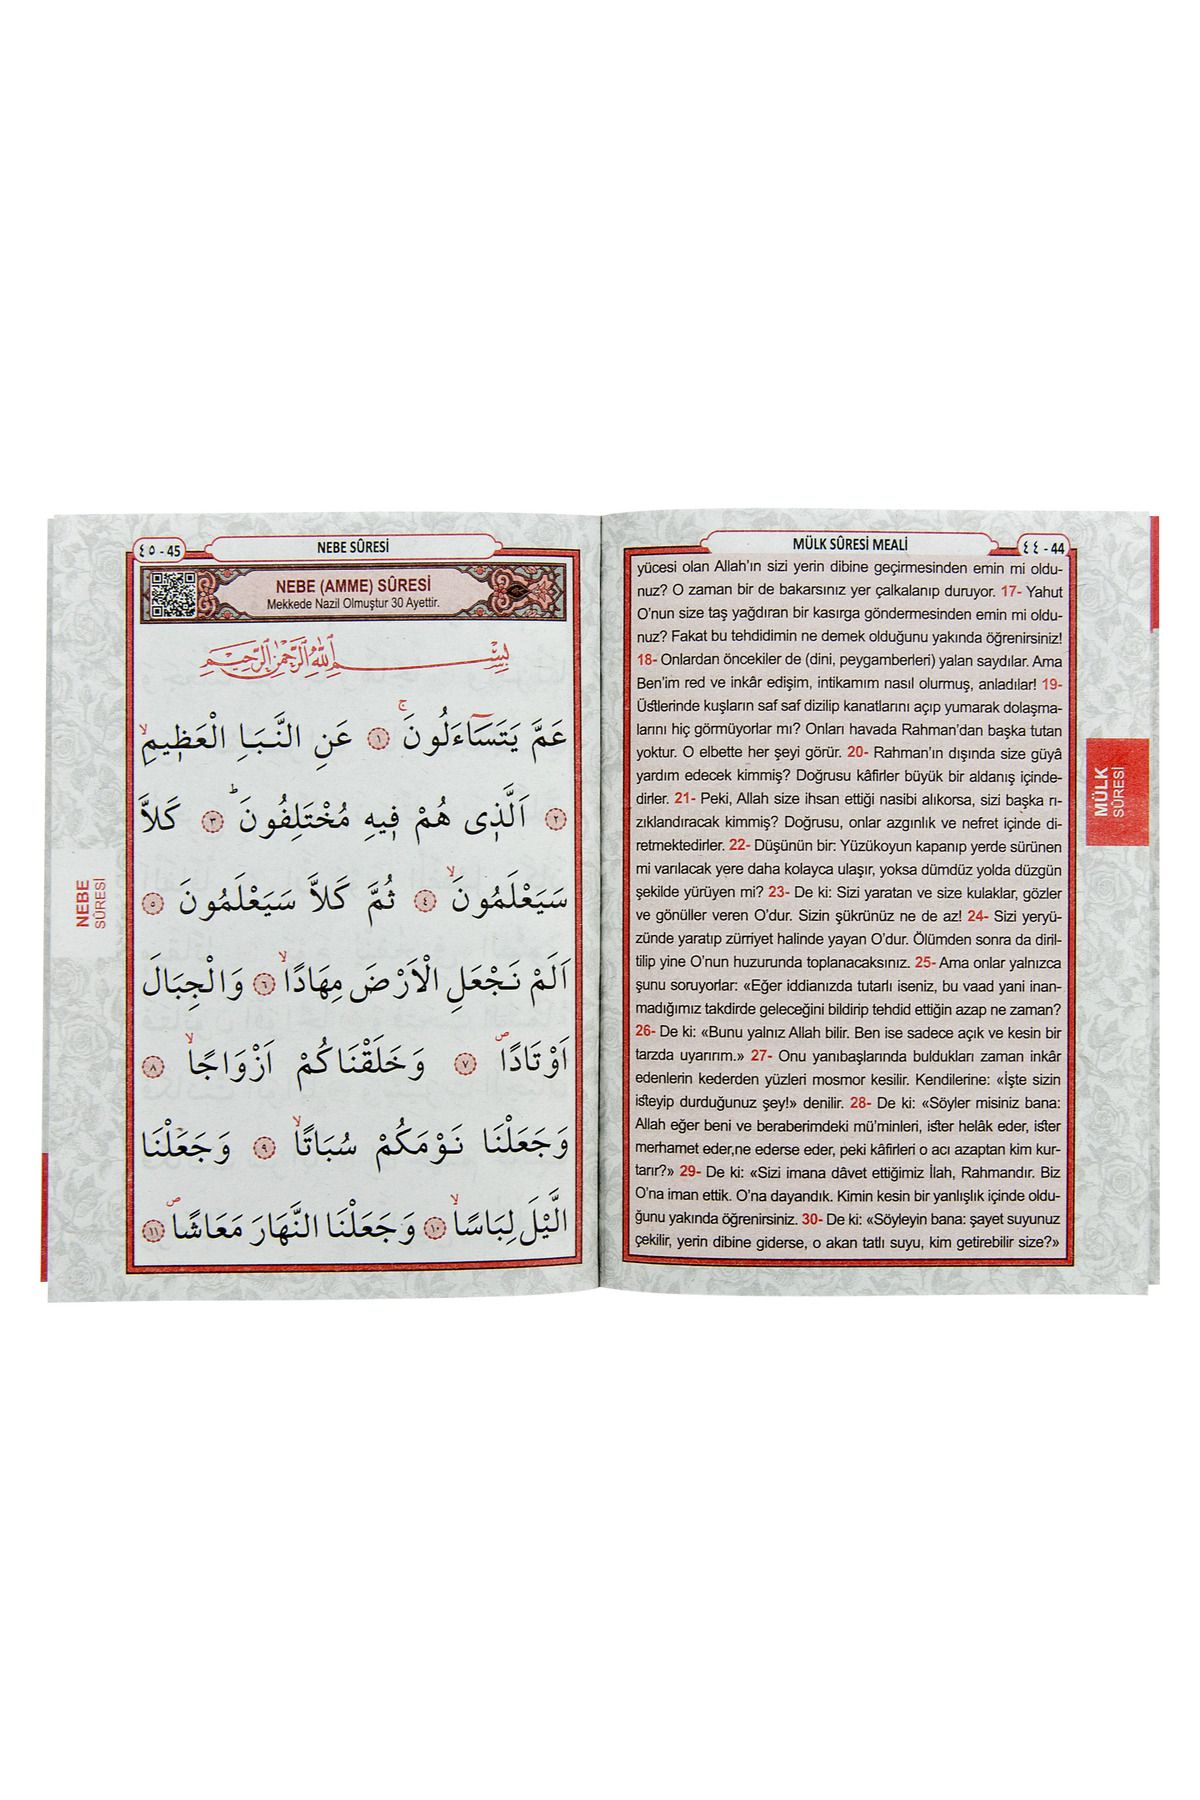 ٤٤ - 44
MÜLK SÛRESİ MEALİ
yücesi olan Allah’ın sizi yerin dibine geçirmesinden emin mi oldu-
nuz? O zaman bir de bakarsınız yer çalkalanıp duruyor. 17- Yahut
O’nun size taş yağdıran bir kasırga göndermesinden emin mi oldu-
nuz? Fakat bu tehdidimin ne demek olduğunu yakında öğrenirsiniz!
18- Onlardan öncekiler de (dini, peygamberleri) yalan saydılar. Ama
Ben’im red ve inkâr edişim, intikamım nasıl olurmuş, anladılar! 19-
Üstlerinde kuşların saf saf dizilip kanatlarını açıp yumarak dolaşma-
larını hiç görmüyorlar mı? Onları havada Rahman’dan başka tutan
yoktur. O elbette her şeyi görür. 20- Rahman’ın dışında size güyâ
yardım edecek kimmiş? Doğrusu kâfirler büyük bir aldanış içinde-
dirler. 21- Peki, Allah size ihsan ettiği nasibi alıkorsa, sizi başka rı-
zıklandıracak kimmiş? Doğrusu, onlar azgınlık ve nefret içinde di-
retmektedirler. 22- Düşünün bir: Yüzükoyun kapanıp yerde sürünen
mi varılacak yere daha kolayca ulaşır, yoksa dümdüz yolda düzgün
şekilde yürüyen mi? 23- De ki: Sizi yaratan ve size kulaklar, gözler
ve gönüller veren O’dur. Sizin şükrünüz ne de az! 24- Sizi yeryü-
zünde yaratıp zürriyet halinde yayan O’dur. Ölümden sonra da diril-
tilip yine O’nun huzurunda toplanacaksınız. 25- Ama onlar yalnızca
şunu soruyorlar: «Eğer iddianızda tutarlı iseniz, bu vaad yani inan-
madığımız takdirde geleceğini bildirip tehdid ettiğin azap ne zaman?
26- De ki: «Bunu yalnız Allah bilir. Ben ise sadece açık ve kesin bir
tarzda uyarırım.» 27- Onu yanıbaşlarında buldukları zaman inkâr
edenlerin kederden yüzleri mosmor kesilir. Kendilerine: «İşte sizin
isteyip durduğunuz şey!» denilir. 28- De ki: «Söyler misiniz bana:
Allah eğer beni ve beraberimdeki mü’minleri, ister helâk eder, ister
merhamet eder,ne ederse eder, peki kâfirleri o acı azaptan kim kur-
tarır?» 29- De ki: «Sizi imana dâvet ettiğimiz İlah, Rahmandır. Biz
O’na iman ettik. O’na dayandık. Kimin kesin bir yanlışlık içinde oldu-
ğunu yakında öğrenirsiniz. 30- De ki: «Söyleyin bana: şayet suyunuz
çekilir, yerin dibine giderse, o akan tatlı suyu, kim getirebilir size?»
MÜLK
SÛRESİ
٤٥ - 45
NEBE SÛRESİ
NEBE (AMME) SÛRESİ
Mekkede Nazil Olmuştur 30 Ayettir.
بِسْمِ اللّٰهِ الرَّحْمٰنِ الرَّحِيمِ
عَمَّ يَتَسَآءَلُونَۚ ١ عَنِ النَّبَاِ الْعَظ۪يمِۙ
٢ اَلَّذ۪ى هُمْ ف۪يهِ مُخْتَلِفُونَۜ ٣ كَلاَّ
سَيَعْلَمُونَۙ ٤ ثُمَّ كَلاَّ سَيَعْلَمُونَ ٥
اَلَمْ نَجْعَلِ الْاَرْضَ مِهَادًاۙ ٦ وَالْجِبَالَ
اَوْتَادًاۖ ٧ وَخَلَقْنَاكُمْ اَزْوَاجًاۙ ٨
وَجَعَلْنَا نَوْمَكُمْ سُبَاتًاۙ ٩ وَجَعَلْنَا
الَّيْلَ لِبَاسًاۙ ١٠ وَجَعَلْنَا النَّهَارَ مَعَاشًاۖ ١١
NEBE
SÛRESİ